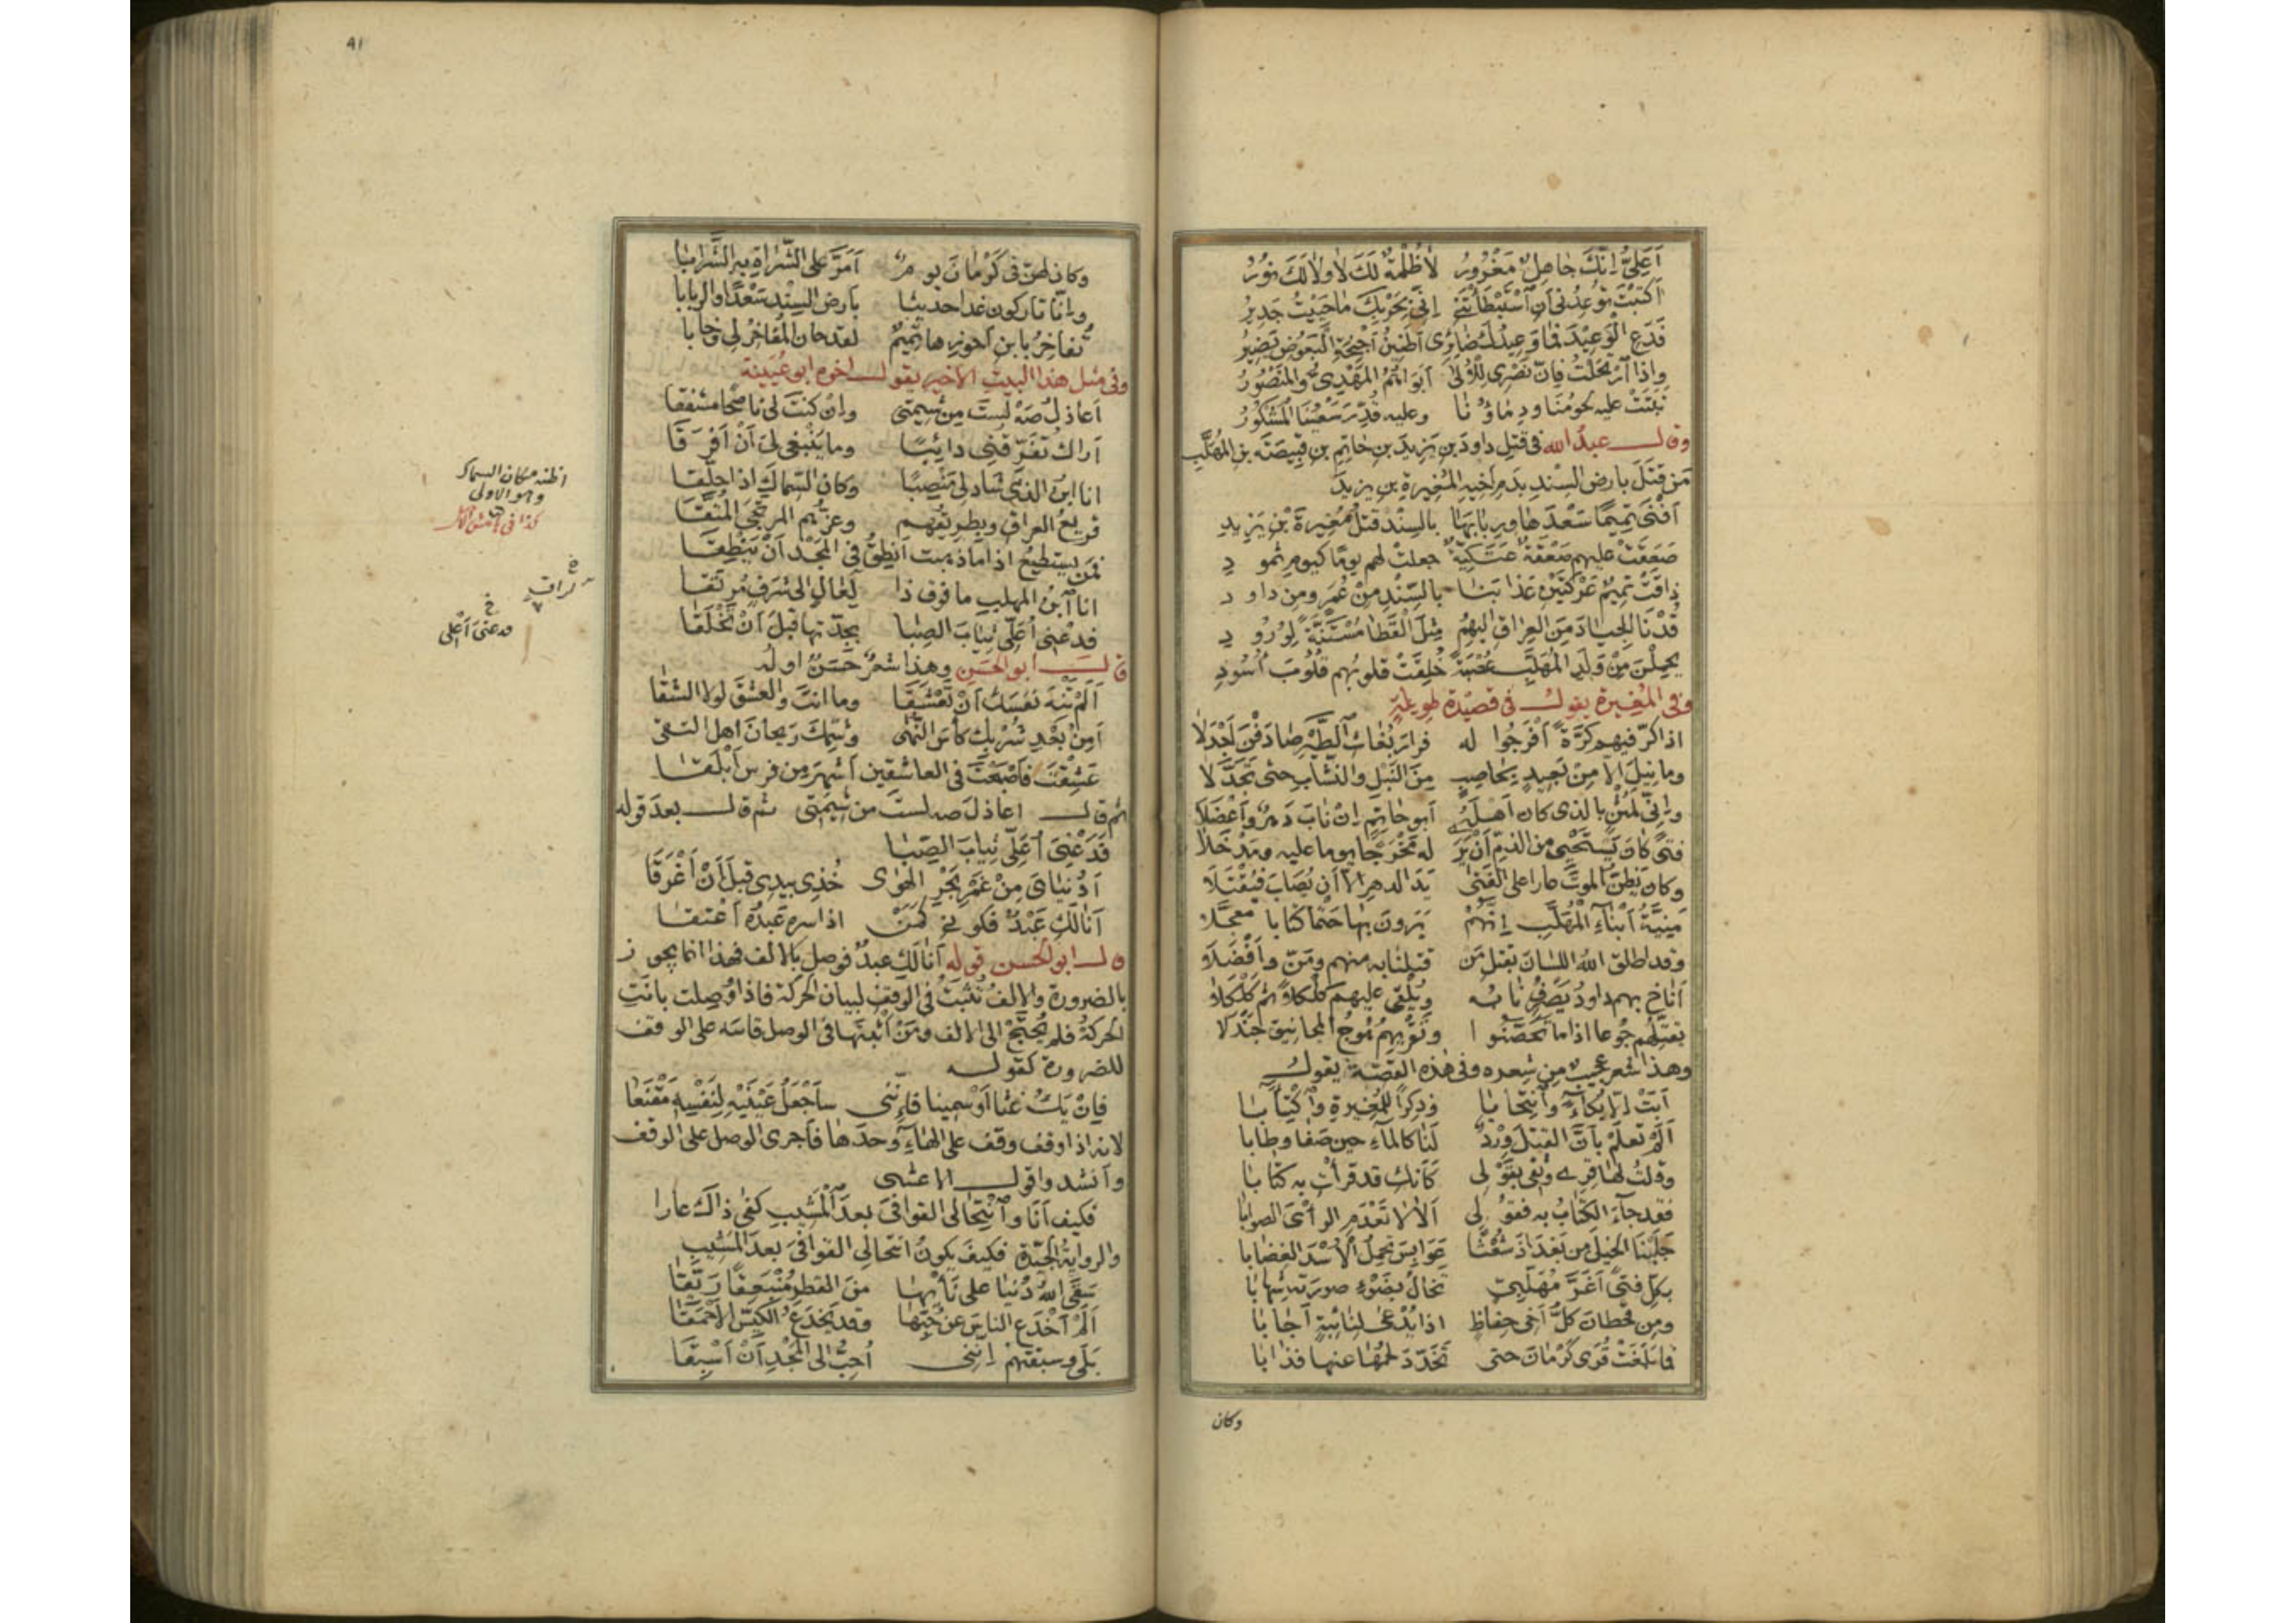 أَعَلِيُّ إِنَّكَ جَاهِلٌ مَغْرُورُ لَا ظُلْمَةٌ لَكَ لَا وَلَا لَكَ نُورُ
أَكَتَبْتَ تُوعِدُنِي أَنِ اسْتَبْطَأْتَنِي إِنِّي بِحَرْبِكَ مَا حَيِيتُ جَدِيرُ
فَدَعِ الْوَعِيدَ فَمَا وَعِيدُكَ ضَائِرِي أَطَنِينُ أَجْنِحَةِ الْبَعُوضِ يَضِيرُ
وَإِذَا ارْتَحَلْتُ فَإِنَّ نَصْرِي لِلْأُلَى أَبَوَاهُمُ الْمَهْدِيُّ وَالْمَنْصُورُ
نَبَتَتْ عليه لُحُومُنَا وَدِمَاؤُنَا وعليه قُدِّرَ سَعْيُنَا الْمَشْكُورُ
وقال عبدُ الله في قتل داود بن يزيد بن حاتم بن قبيصة بن المهلب
مَن قَتَلَ بأرض السند بدم أخيه المغيرة بن يزيد
أَفْنَى تَمِيمًا سَعْدَهَا وربابَهَا بالسِّنْدِ قتلُ مُغِيرَةَ بْنِ يَزِيدِ
صَعَقَتْ عليهم صَعْقَةٌ عَتَكِيَّةٌ جعلتْ لهم يومًا كيوم ثمودِ
ذاقَتْ تميمٌ عَرْكَتَيْنِ عَذَابَنَا بالسِّنْدِ مِنْ عُمَرٍ ومن داودِ
قُدْنَا الجِيَادَ مِنَ العِرَاقِ إليهِمُ مِثْلَ القَطَا مُسْتَنَّةً لِوُرُودِ
يحملنَ مِنْ وَلَدِ المُهَلَّبِ عُصْبَةً خُلِقَتْ قلوبُهم قُلُوبَ أُسُودِ
وفي المغيرة يقول في قصيدة طويلة
إذا كرّ فيهم كَرَّةً أفرجوا له فرارَ بُغَاثِ الطَّيْرِ صَادَفْنَ أَجْدَلَا
وما نِيلَ إلا مِنْ بَعِيدٍ بِحَاصِبٍ مِنَ النَّبْلِ والنُّشَّابِ حتى تَجَدَّلَا
وإنّي لَمُثْنٍ بالذي كان أهلَهُ أبو حاتم إن ناب دهر وأعضلا
فتىً كان يَسْتَحْيِي من الذمّ أن يَرَ له مَخْرَجًا يومًا عليه ومَدْخَلَا
وكان يَظُنُّ الموتَ عارا على الفَتَى يَدَ الدهر إلا أن يُصَابَ فَيُقْتَلَا
مَنِيَّةُ أَبْنَاءِ المُهَلَّبِ إنهم يَرَونَ بها حَتْمًا كتابا معجَّلا
وقد أطلق اللهُ اللسانَ بقتل مَن قتلنا به منهم ومَنَّ وأَفْضَلَا
أناخ بهم داودُ يَصْرِفُ نابَه ويُلْقِي عليهم كَلْكَلًا ثم كَلْكَلَا
يقتّلهم جوعا إذا ما تَحَصَّنُوا وتَقْرِيهِمُ هُوجُ المجانيقِ جَنْدَلَا
وهذا شعر عجيب من شعره وفي هذه القصّة يقول
أَبَتْ إلا بكاءً وانتحابا وذِكْرًا للمُغِيرةِ واكتئابا
أَلَمْ تَعْلَمْ بأنّ القتلَ وِرْدٌ لنا كالماء حين صَفَا وطابا
وقلتُ لها قِرِي وثِقِي بقَوْلِي كأنك قد قرأتِ به كتابا
فقد جاء الكتابُ به فقولي ألا لا تَعْدَمِ الرأيَ الصوابا
جَلَبْنَا الخيلَ من بَغْدَاذَ شُعْثًا عَوَابِسَ تحمِلُ الأُسْدَ الغِضَابا
بكلّ فتىً أغرَّ مُهَلَّبِيٍّ تخالُ بضوء صورته شهابا
ومِن قحطانَ كلَّ أخي حِفاظٍ إذا يُدْعَى لنائبةٍ أجابا
فما بَلَغَتْ قُرَى كَرْمَانَ حتى تَخَدَّدَ لحمُها عنها فذابا
وكان
٤١
وكان لهنّ في كَرْمَانَ يومٌ أَمَرَّ على الشُّراةِ به الشَّرابا
وإنّا تاركون غدا حديثا بأرض السِّنْدِ سَعْدًا والربابا
تُفاخِرُ بابن أَحْوَزِها تميمٌ لقد حان المُفَاخِرُ لي وخابا
وفي مثل هذا البيت الأخير يقول أخوه أبو عُيَيْنة
أعاذلُ صَهْ لَسْتَ من شِيمتي وإن كنتَ لي ناصحا مشفقا
أراك تُفَرِّقُني دائبًا وما ينبغي ليَ أنْ أَفْرَقَا
أنا ابنُ الذي شاد لي مَنْصِبًا وكان السِّماكَ إذا حلّقا
قريعُ العراق وبطريقُهم وعزّهم المرتجى المتّقى
فمن يستطيعُ إذا ما ذهبت أنطقُ في المجد أن ينطِقا
أنا ابنُ المهلب ما فوق ذا لعالٍ إلى شرفٍ مرتقى
فدعني أُغَلِّي ثيابَ الصِّبا بجِدّتها قبل أنْ تَخْلَقَا
قال أبو الحسن وهذا شعرٌ حَسَنٌ أوله
ألم تَنْهَ نفسَك أن تَعْشَقَا وما أنتَ والعشقَ لولا الشقا
أَمِنْ بَعْدِ شُرْبِكَ كأسَ النُّهَى وشَمِّكَ رَيحانَ أهل التقى
عَشِقْتَ فأصبحتَ في العاشقين أشهرَ من فرسٍ أبلقا
ثم قال أعاذلَ صه لستَ من شيمتي ثم قال بعد قوله
فَدَعْنِيَ أُغَلِّي ثيابَ الصِّبا
أَدُنيايَ مِنْ غَمْرِ بَحْرِ الهَوَى خُذِي بيدي قبل أن أَغْرَقَا
أنا لَكِ عَبْدٌ فكوني كَمَنْ إذا سرّه عبدُه أعتقا
قال أبو الحسن قوله أنا لَكِ عبدٌ فوصل بالألف فهذا إنما يجوز
بالضرورة والألفُ تثبتُ في الوقف لبيان الحركة فإذا وُصِلت بانتِ
الحركةُ فلم يُحتَجْ إلى الألف ومَنْ أثبتها في الوصل قاسه على الوقف
للضرورة كقوله
فإنْ يَكُ غَثًّا أو سمينا فإنّني سأجعلُ عَيْنَيْهِ لنفسِهِ مَقْنَعَا
لأنه إذا وقف وقف على الهاء وحدَها فأجرى الوصل على الوقف
وأنشدوا قول الأعشى
فكيف أنا وانتحالي القوافيَ بعدَ المَشِيبِ كفى ذاك عارا
والروايةُ الجيّدة فكيفَ يكونُ انتحالي القوافيَ بعدَ المَشِيبِ
سَقَى اللهُ دُنيا على نَأْيِهَا من القطر مُنْبَعِقًا رَيِّقَا
ألم أخدَعِ الناسَ عن حُبِّها وقد يَخْدَعُ الكَيِّسُ الأحمقا
بلى وسبقتُهمُ إنني أُحِبُّ إلى المجد أن أسبِقا
اظنه مكان السماك
وهو الاولى
فدعني أُغلي